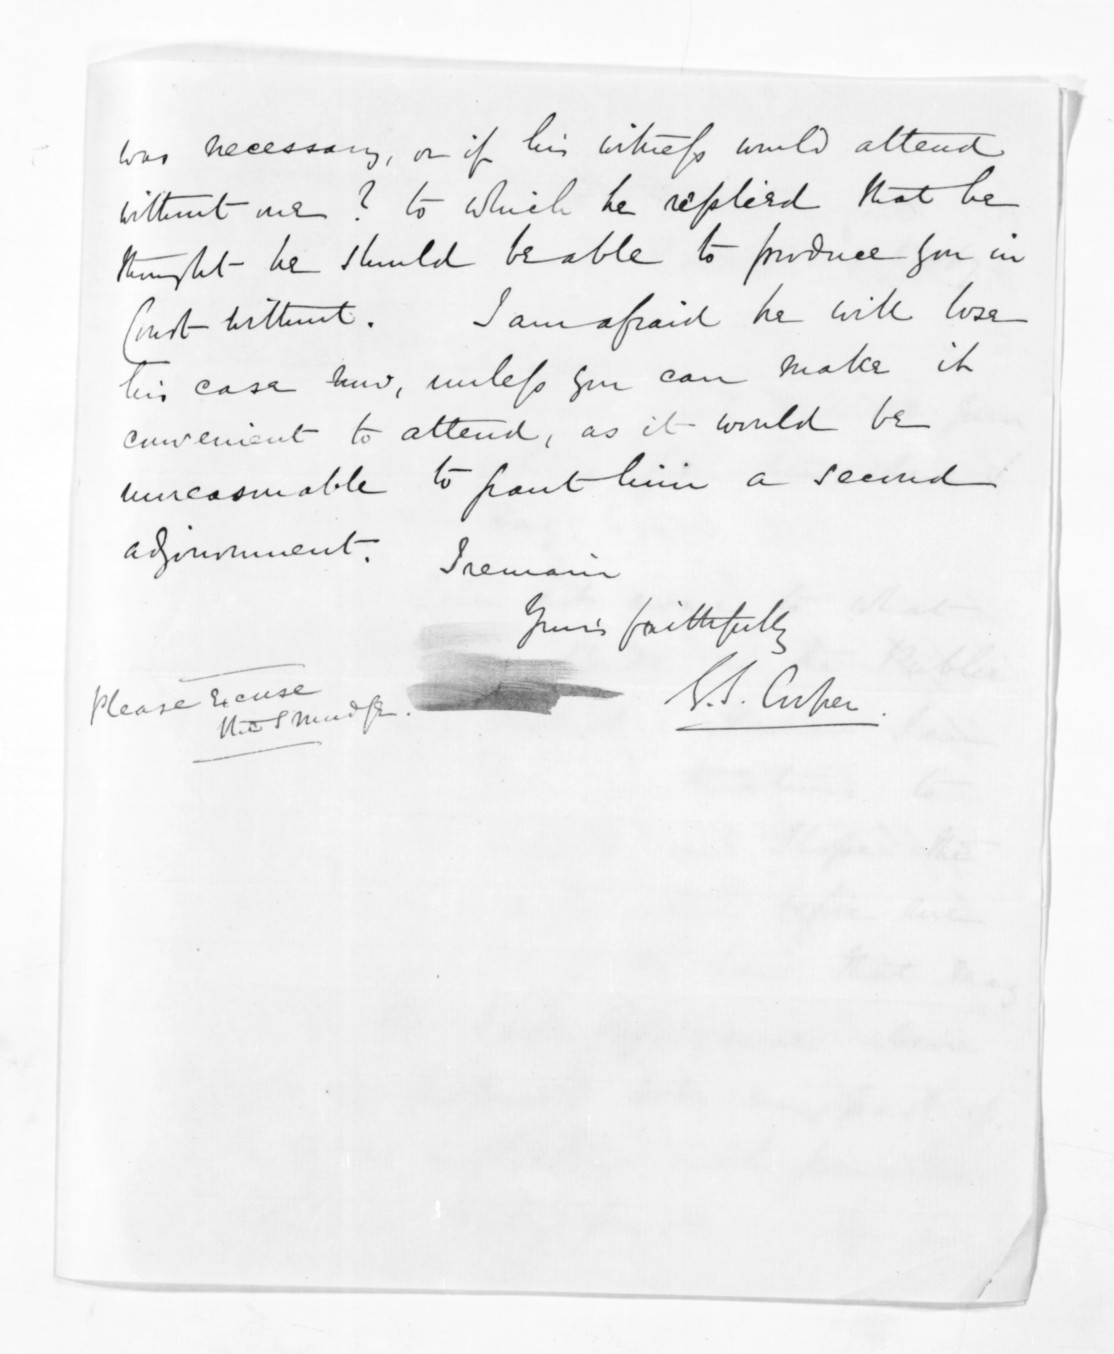 was necessary, or if his witness would attend
without one? to which he replied that he
thought he should be able to produce you in
Court without. I am afraid he will lose
his case now, unless you can make it
convenient to attend, as it would be
unreasonable to grant him a second
adjournment.
I remain
Yours faithfully
G.S. Cooper.
Please Excuse
this Smudge.